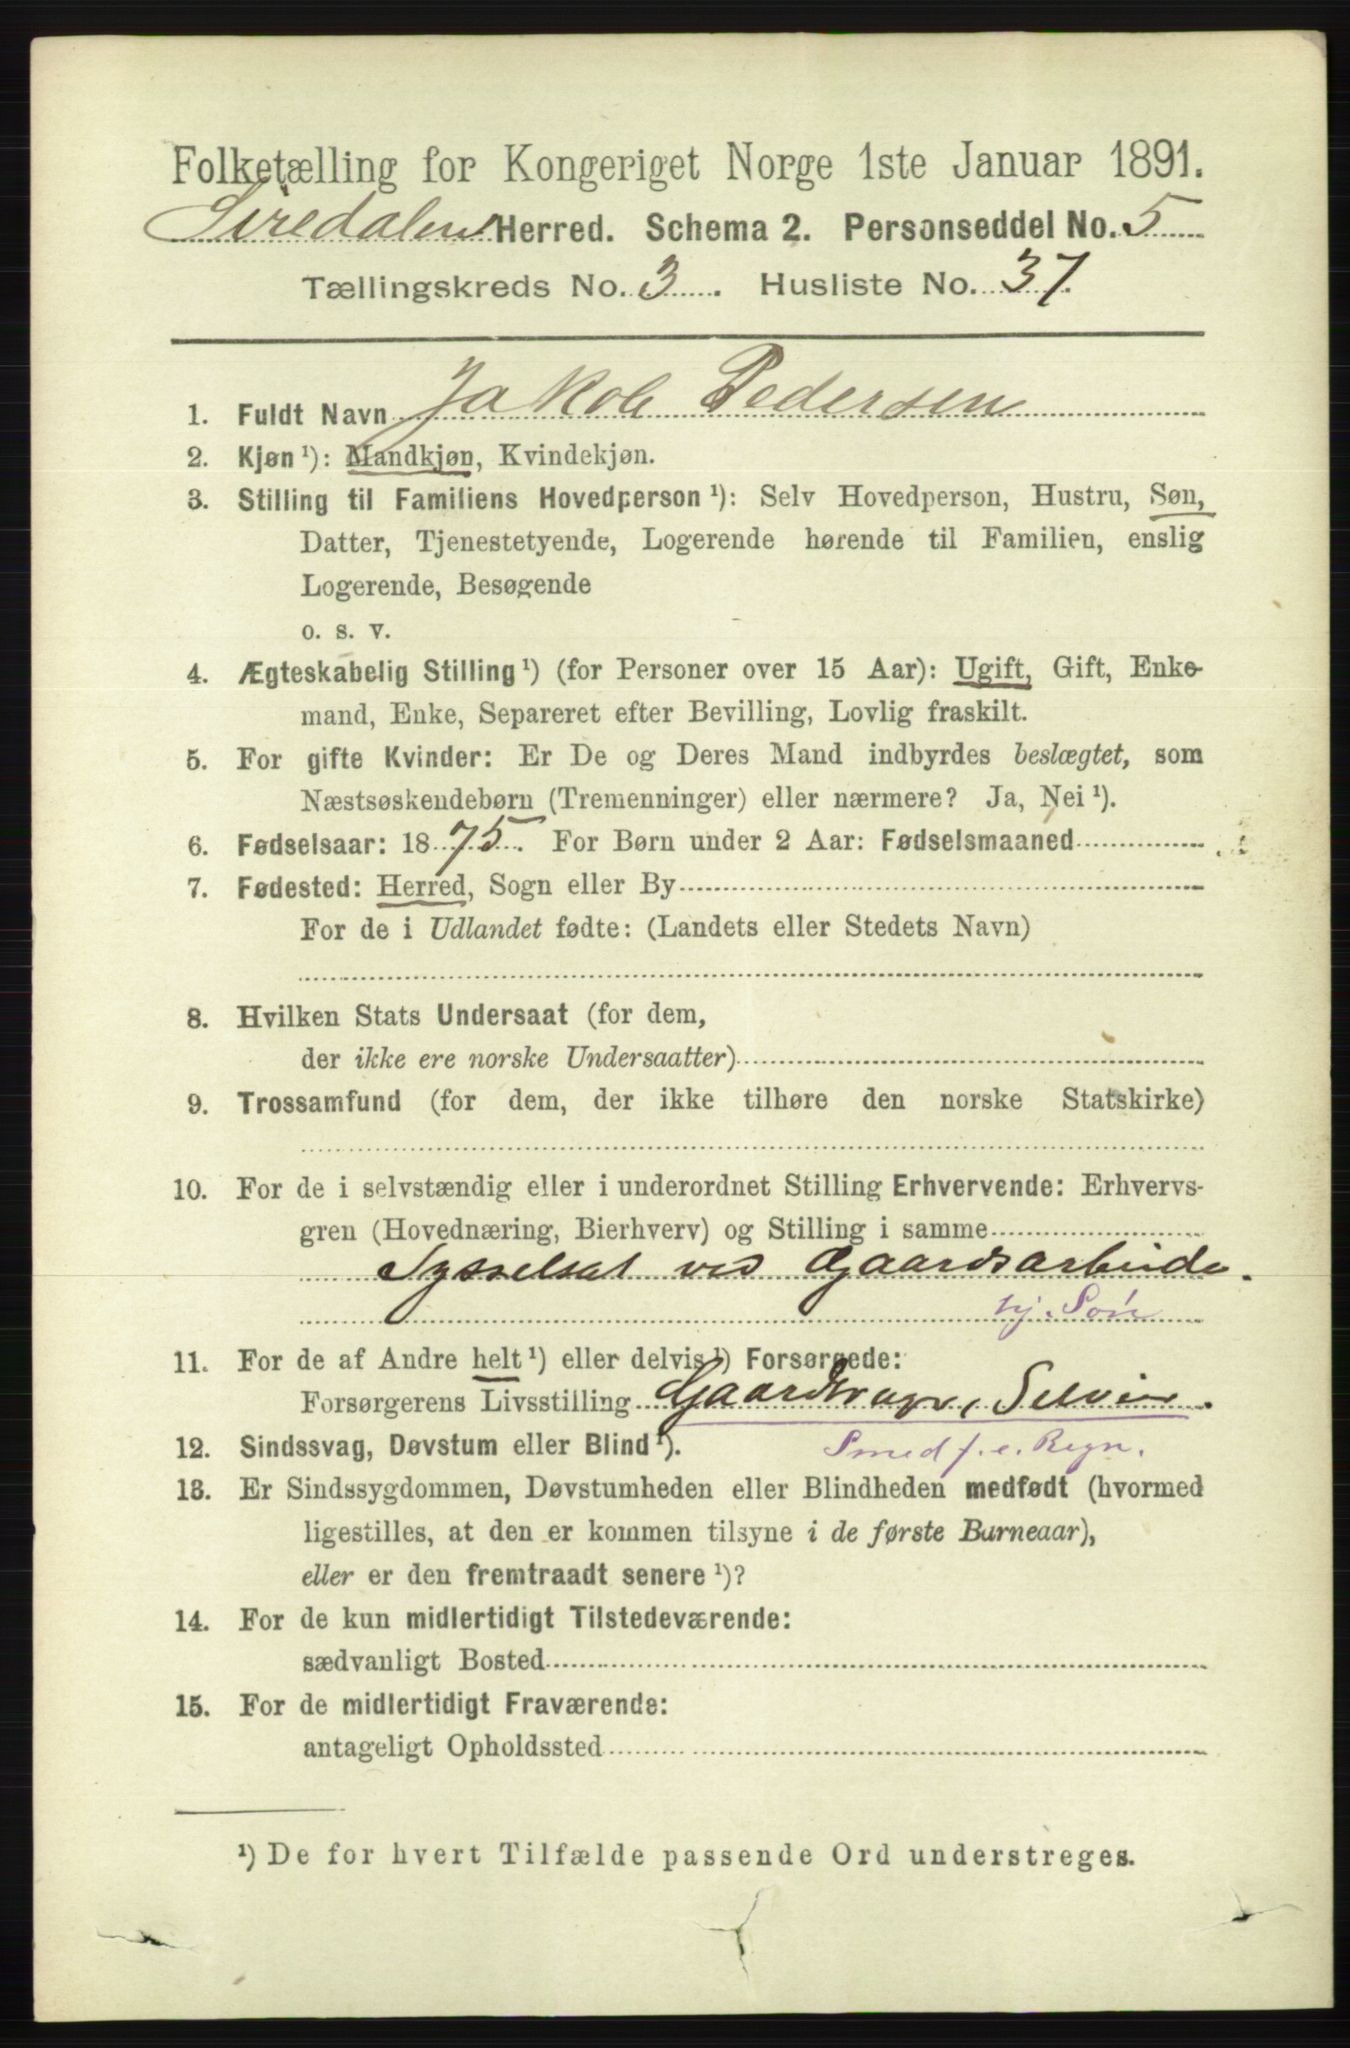 Folketælling for Kongeriget Norge 1ste Januar 1891.
Siredalens Herred. Schema 2. Personseddel No. 5
Tællingskreds No. 3. Husliste No. 37.
1. Fuldt Navn Jakob Pedersen
2. Kjøn ¹): Mandkjøn, Kvindekjøn.
3. Stilling til Familiens Hovedperson ¹): Selv Hovedperson, Hustru, Søn,
Datter, Tjenestetyende, Logerende hørende til Familien, enslig
Logerende, Besøgende
o. s. v.
4. Ægteskabelig Stilling ¹) (for Personer over 15 Aar): Ugift, Gift, Enke-
mand, Enke, Separeret efter Bevilling, Lovlig fraskilt.
5. For gifte Kvinder: Er De og Deres Mand indbyrdes beslægtet, som
Næstsøskendebørn (Tremenninger) eller nærmere? Ja, Nei ¹).
6. Fødselsaar: 1875. For Børn under 2 Aar: Fødselsmaaned
7. Fødested: Herred, Sogn eller By
For de i Udlandet fødte: (Landets eller Stedets Navn)
8. Hvilken Stats Undersaat (for dem,
der ikke ere norske Undersaatter)
9. Trossamfund (for dem, der ikke tilhøre den norske Statskirke)
10. For de i selvstændig eller i underordnet Stilling Erhvervende: Erhvervs-
gren (Hovednæring, Bierhverv) og Stilling i samme
Sysselsat ved Gaardsarbeide.
hj. Søn
11. For de af Andre helt ¹) eller delvis ¹) Forsørgede:
Forsørgerens Livsstilling Gaardbruger, Selveier.
12. Sindssvag, Døvstum eller Blind ¹). Smed f. e. Regn.
13. Er Sindssygdommen, Døvstumheden eller Blindheden medfødt (hvormed
ligestilles, at den er kommen tilsyne i de første Barneaar),
eller er den fremtraadt senere ¹)?
14. For de kun midlertidigt Tilstedeværende:
sædvanligt Bosted
15. For de midlertidigt Fraværende:
antageligt Opholdssted
¹) De for hvert Tilfælde passende Ord understreges.